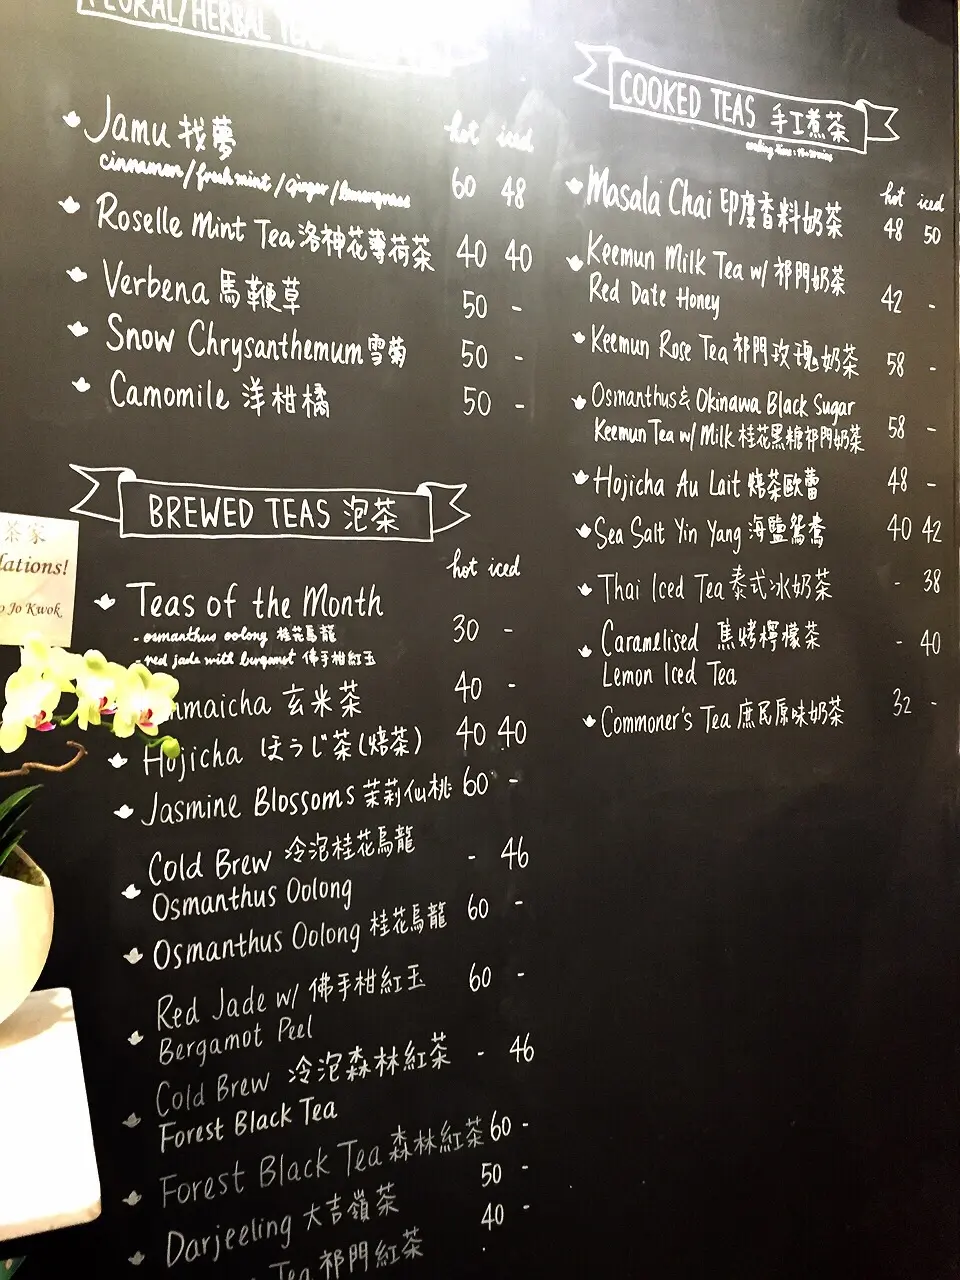 FLORAL/HERBAL TEA
hot iced
Jamu 找夢 60 48
cinnamon/fresh mint/ginger/lemongrass
Roselle Mint Tea 洛神花薄荷茶 40 40
Verbena 馬鞭草 50 -
Snow Chrysanthemum 雪菊 50 -
Camomile 洋柑橘 50 -
BREWED TEAS 泡茶
hot iced
Teas of the Month 30 -
- osmanthus oolong 桂花烏龍
- red jade with bergamot 佛手柑紅玉
nmaicha 玄米茶 40 -
Hojicha ほうじ茶(焙茶) 40 40
Jasmine Blossoms 茉莉仙桃 60 -
Cold Brew 冷泡桂花烏龍 - 46
Osmanthus Oolong
Osmanthus Oolong 桂花烏龍 60 -
Red Jade w/ 佛手柑紅玉 60 -
Bergamot Peel
Cold Brew 冷泡森林紅茶 - 46
Forest Black Tea
Forest Black Tea 森林紅茶 60 -
Darjeeling 大吉嶺茶 50 -
Tea 祁門紅茶 40 -
COOKED TEAS 手工煮茶
hot iced
Masala Chai 印度香料奶茶 48 50
Keemun Milk Tea w/ 祁門奶茶 42 -
Red Date Honey
Keemun Rose Tea 祁門玫瑰奶茶 58 -
Osmanthus & Okinawa Black Sugar 58 -
Keemun Tea w/ Milk 桂花黑糖祁門奶茶
Hojicha Au Lait 焙茶歐蕾 48 -
Sea Salt Yin Yang 海鹽鴛鴦 40 42
Thai Iced Tea 泰式冰奶茶 - 38
Caramelised 焦烤檸檬茶 - 40
Lemon Iced Tea
Commoner's Tea 庶民原味奶茶 32 -
茶家
lations!
Jo Kwok